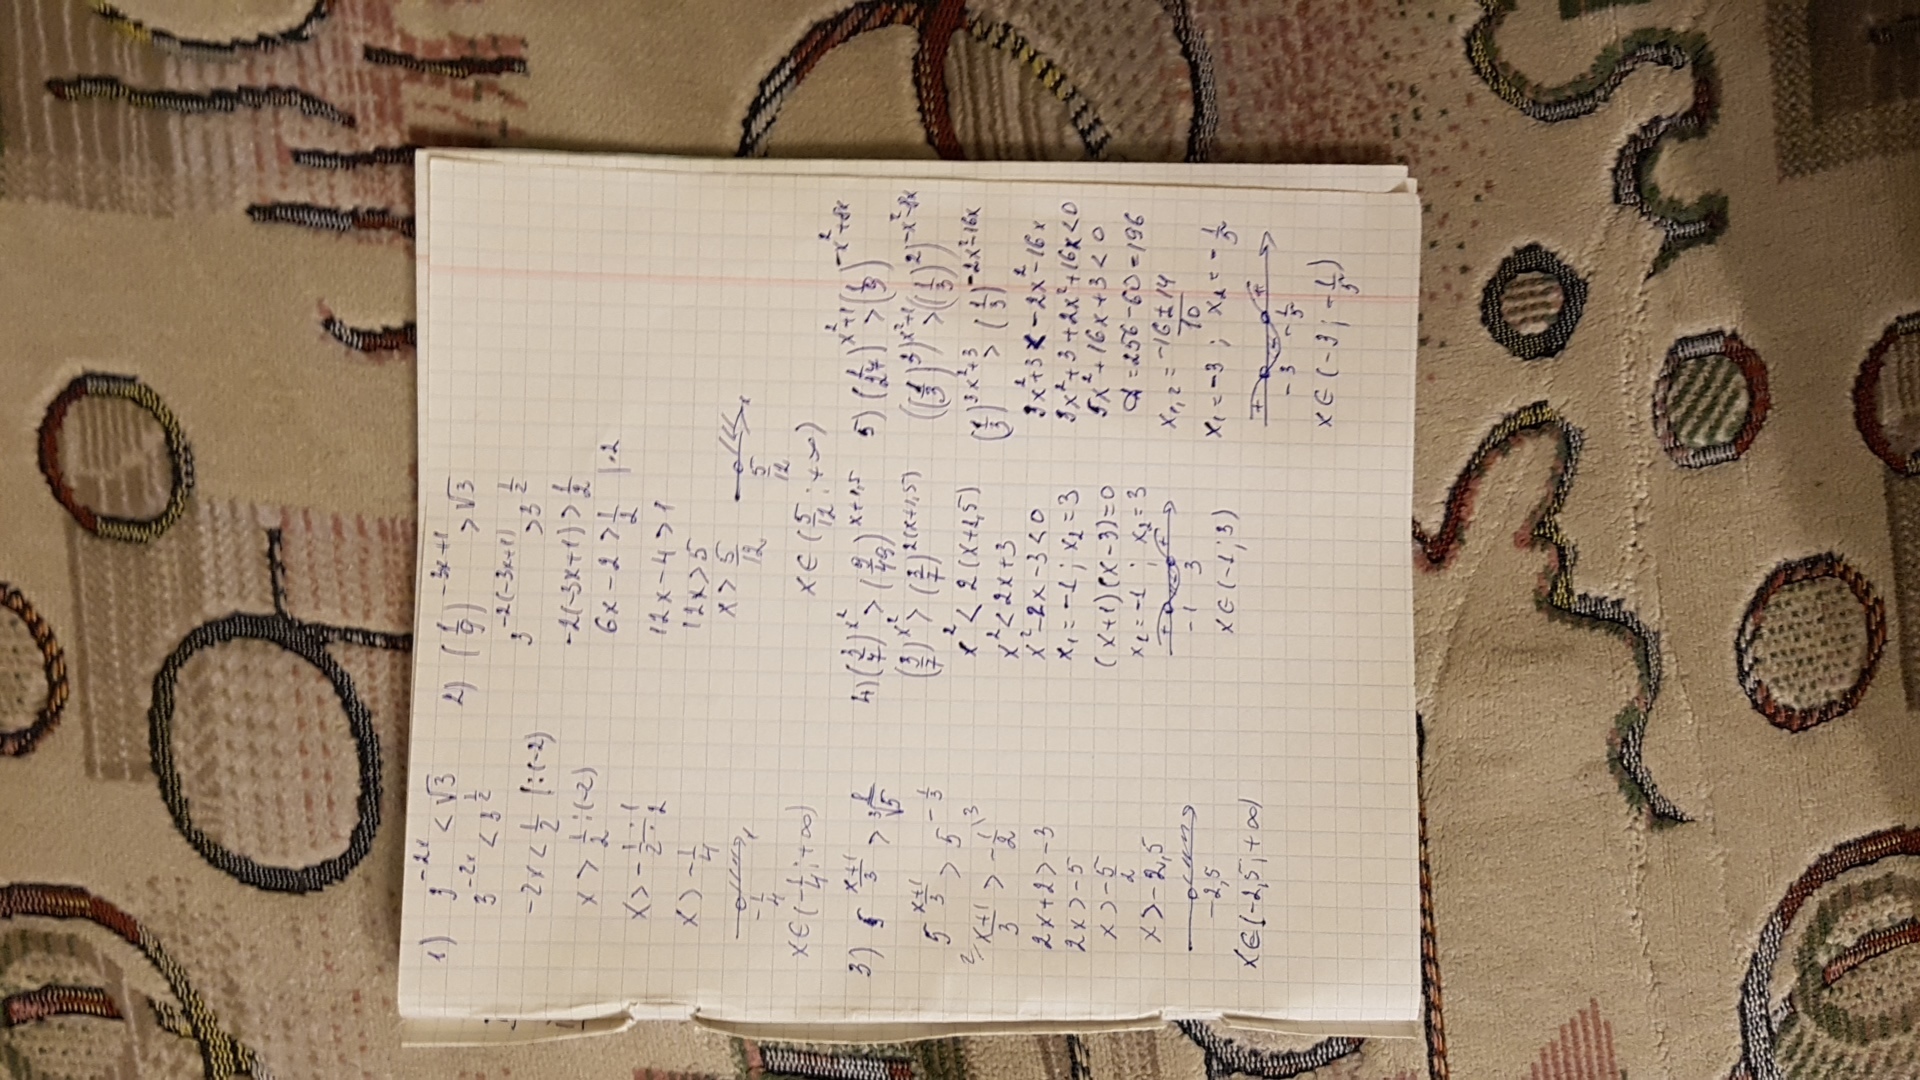 1) 3^{-2x} < √3
3^{-2x} < 3^{1/2}
-2x < 1/2 |:(-2)
x > 1/2 : (-2)
x > -1/2 · 1/2
x > -1/4
-1/4
x ∈ (-1/4; +∞)
2) (1/9)^{-3x+1} > √3
3^{-2(-3x+1)} > 3^{1/2}
-2(-3x+1) > 1/2
6x - 2 > 1/2 |·2
12x - 4 > 1
12x > 5
x > 5/12
5/12
x ∈ (5/12; +∞)
3) 5^{(x+1)/3}
5^{(x+1)/3} > 5
2x+2 > -3
2x > -5
x > -5/2
x > -2,5
-2,5
x ∈ (-2,5; +∞)
4) (3/7)^{x²} > (9/49)^{x+1,5}
(3/7)^{x²} > (3/7)^{2(x+1,5)}
x² < 2(x+1,5)
x² < 2x+3
x² - 2x - 3 < 0
x₁ = -1; x₂ = 3
(x+1)(x-3) = 0
x₁ = -1; x₂ = 3
+ - +
-1 3
x ∈ (-1; 3)
5) (1/27)^{x²+1} > (1/9)^{-x²+8x}
((1/3)^3)^{x²+1} > ((1/3)^2)^{-x²-8x}
(1/3)^{3x²+3} > (1/3)^{-2x²-16x}
3x²+3 < -2x²-16x
3x²+3+2x²+16x < 0
5x²+16x+3 < 0
D = 256-60 = 196
x₁,₂ = (-16±14)/10
x₁ = -3; x₂ = -1/5
+ - +
-3 -1/5
x ∈ (-3; -1/5)